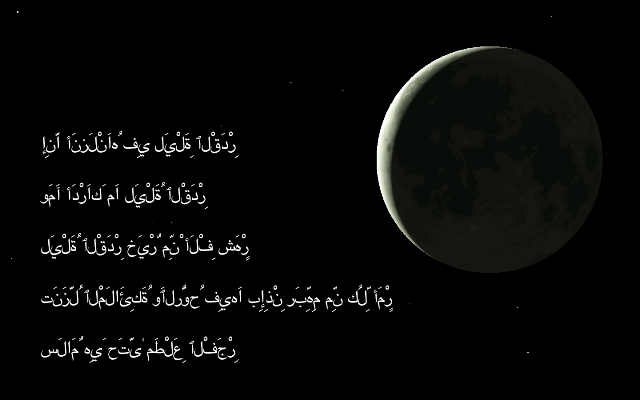 إِنَّا أَنزَلْنَاهُ فِي لَيْلَةِ ٱلْقَدْرِ
وَمَا أَدْرَاكَ مَا لَيْلَةُ ٱلْقَدْرِ
لَيْلَةُ ٱلْقَدْرِ خَيْرٌ مِّنْ أَلْفِ شَهْرٍ
تَنَزَّلُ ٱلْمَلَائِكَةُ وَٱلرُّوحُ فِيهَا بِإِذْنِ رَبِّهِم مِّن كُلِّ أَمْرٍ
سَلَامٌ هِيَ حَتَّىٰ مَطْلَعِ ٱلْفَجْرِ